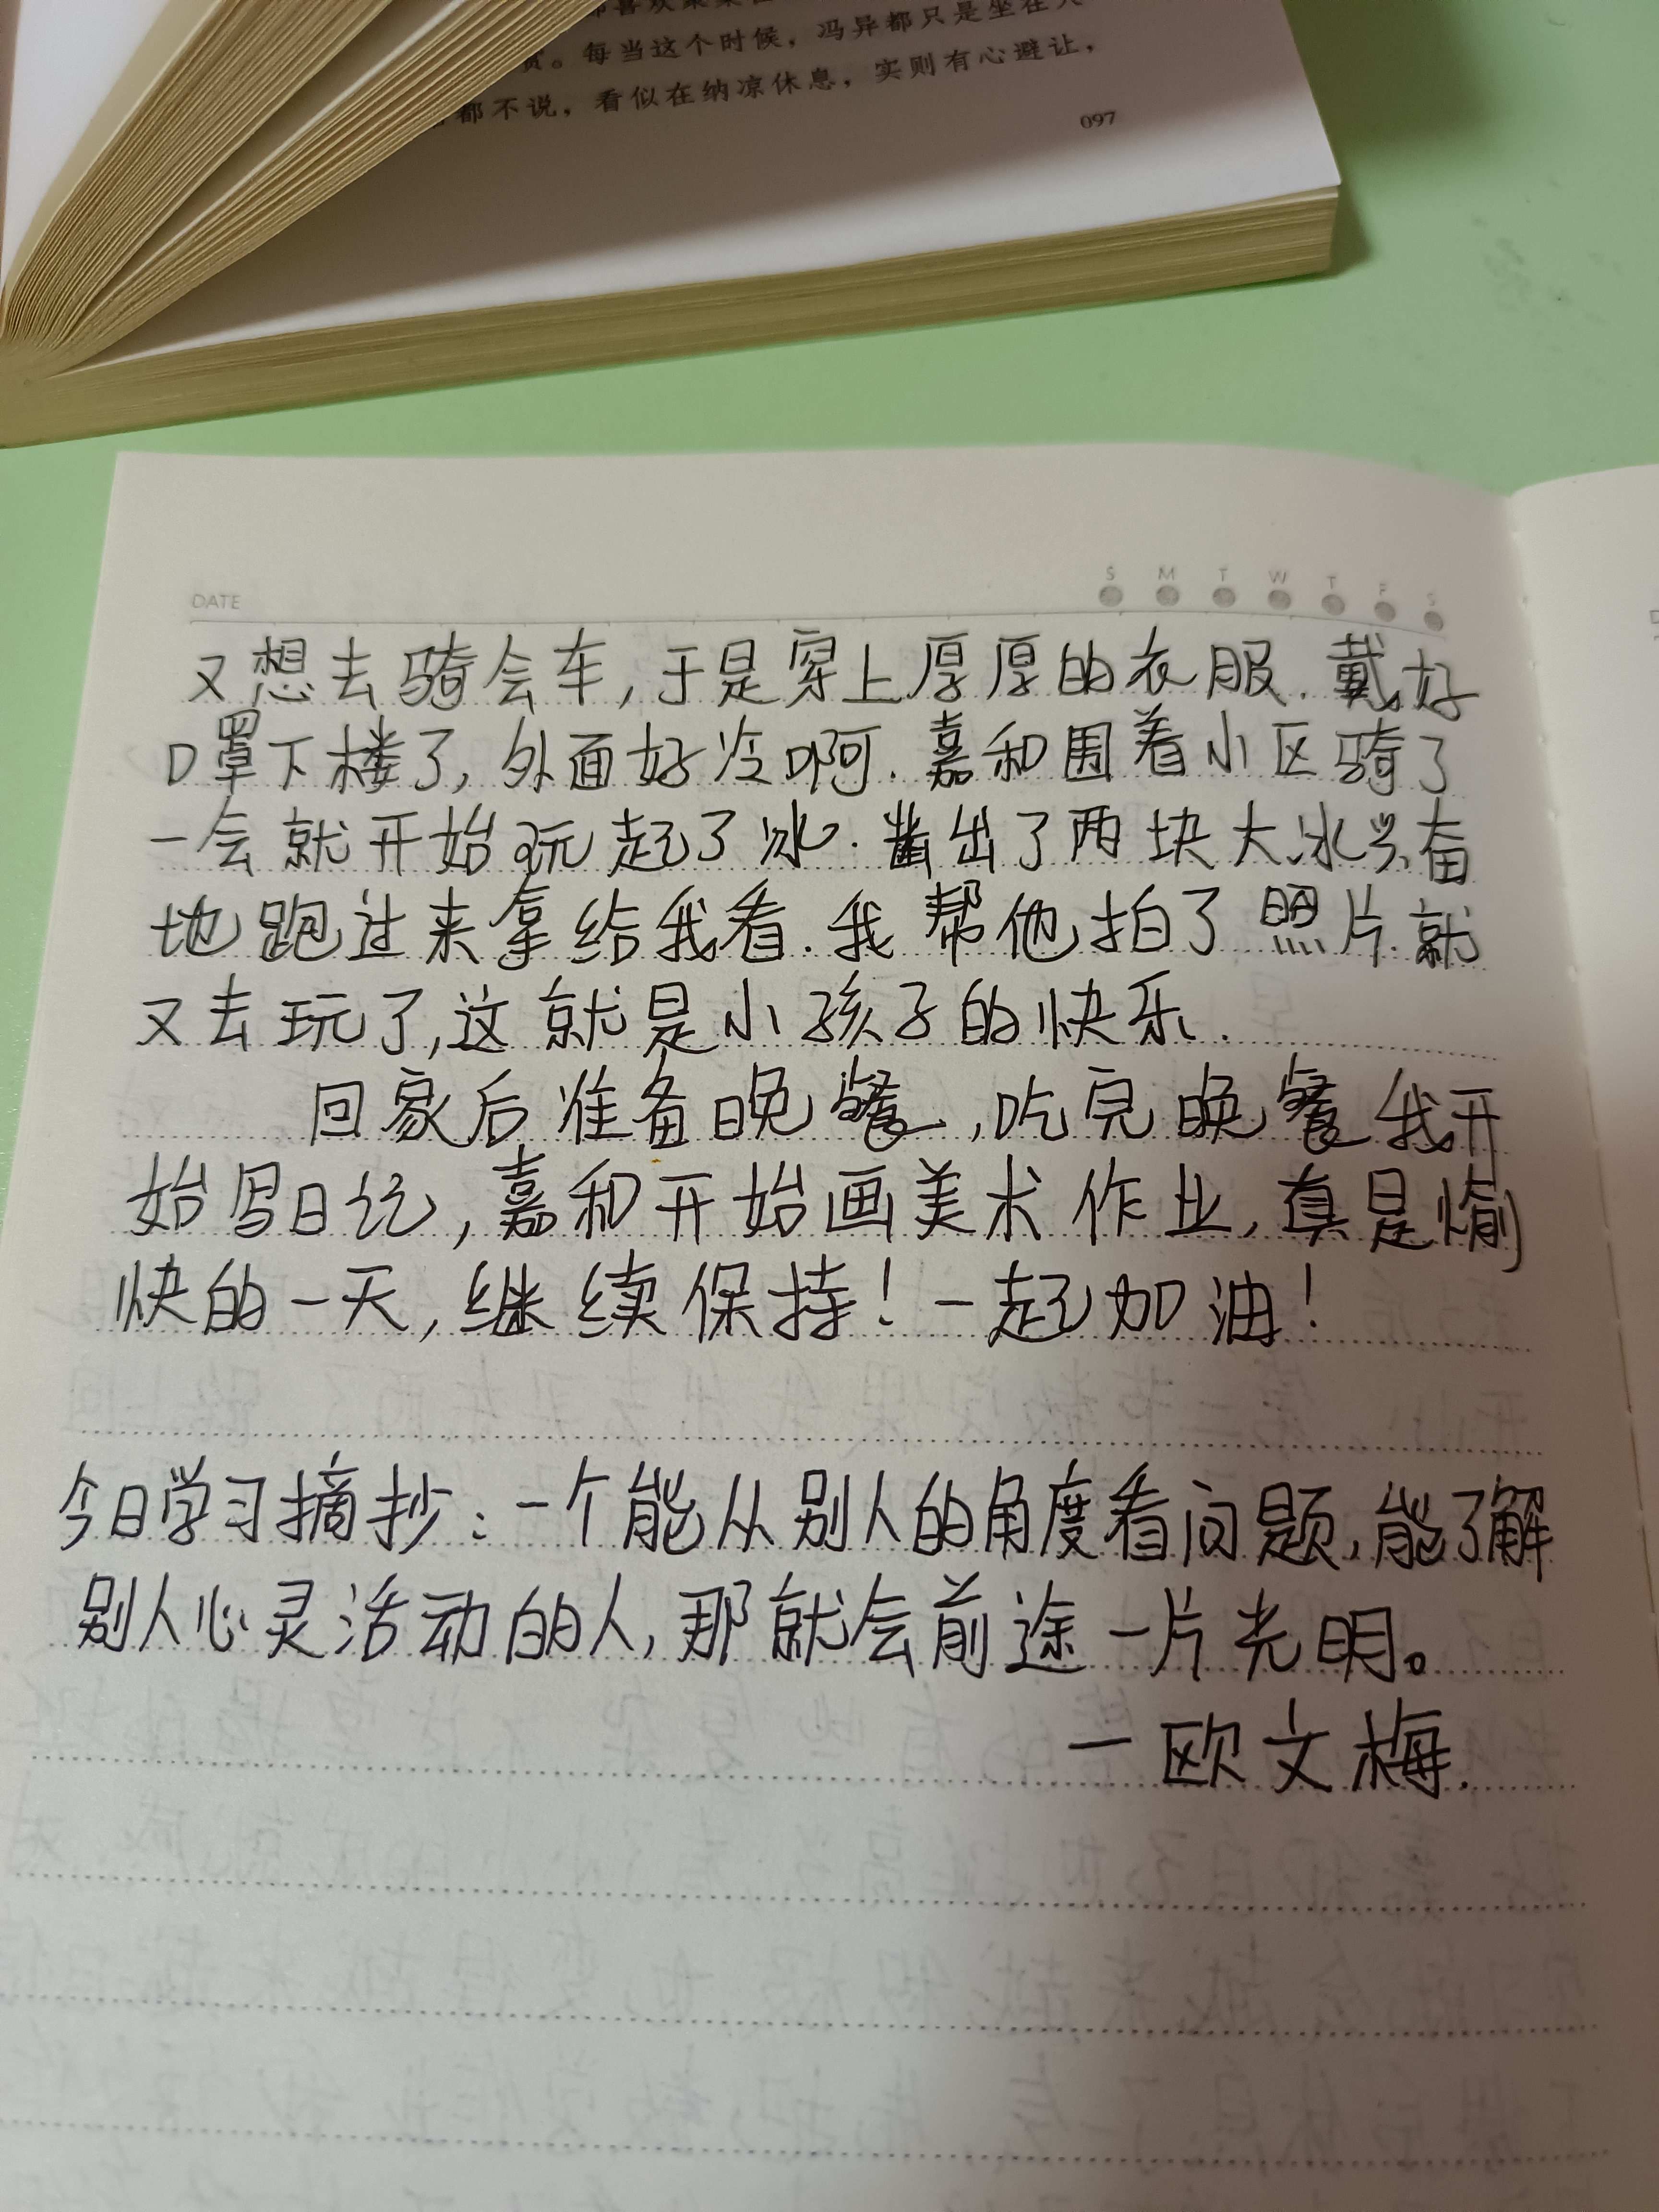 都喜欢聚集在
赏。每当这个时候，冯异都只是坐在大
都不说，看似在纳凉休息，实则有心避让，
097
DATE
S M T W T F S
又想去骑会车,于是穿上厚厚的衣服.戴好
口罩下楼了,外面好冷啊.嘉和围着小区骑了
一会就开始玩起了冰.凿出了两块大冰兴奋
地跑过来拿给我看.我帮他拍了照片.就
又去玩了,这就是小孩子的快乐.
回家后准备晚餐,吃完晚餐我开
始写日记,嘉和开始画美术作业,真是愉
快的一天,继续保持!一起加油!
今日学习摘抄:一个能从别人的角度看问题,能了解
别人心灵活动的人,那就会前途一片光明。
一欧文梅.